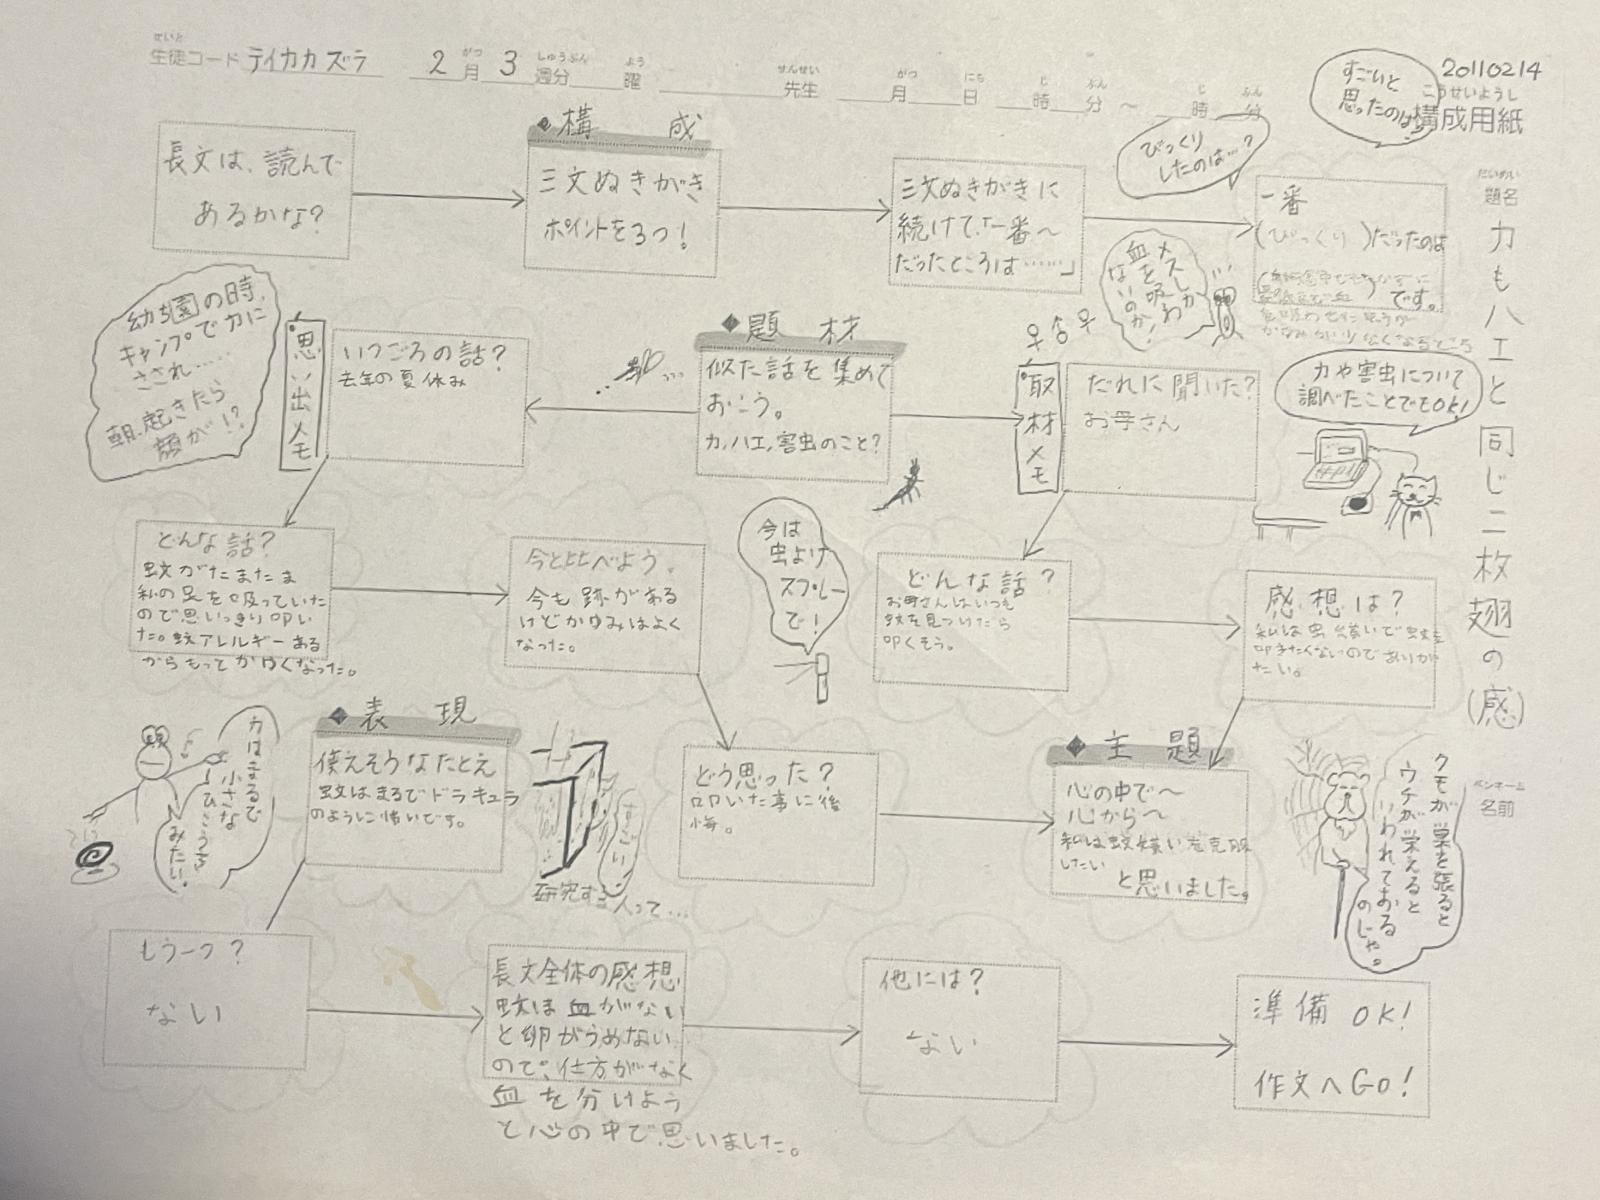 せいと
生徒コード テイカカズラ 2月 3週分 曜 先生 月 日 時 分 ～ 時 分
がつ しゅうぶん よう せんせい がつ にち じ ふん じ ふん
20110214
こうせいようし
構成用紙
だいめい
題名
力もハエと同じ二枚翅の(感)
ペンネーム
名前
すごいと
思ったのは?
長文は、読んで
あるかな?
◆構 成
三文ぬきがき
ポイントを3つ!
三文ぬきがきに
続けて、「一番～
だったところは……」
びっくり
したのは…?
一番
(びっくり)だったのは
です。
メスしか
血を吸わ
ないのか!
幼ち園の時、
キャンプでカに
さされ……
朝、起きたら
顔が!?
思い出メモ
いつごろの話?
去年の夏休み
◆題 材
似た話を集めて
おこう。
カ、ハエ、害虫のこと?
♀♂♀
取材メモ
だれに聞いた?
お母さん
カや害虫について
調べたことでもOK!
どんな話?
蚊がたまたま
私の足を吸っていた
ので思いっきり叩い
た。蚊アレルギーある
からもってかゆくなった。
今と比べよう。
今も跡がある
けどかゆみはよく
なった。
今は
虫よけ
スプレー
で!
どんな話?
お母さんはいつも
蚊を見つけたら
叩くそう。
感想は?
私は虫嫌いで蚊を
叩きたくないのでありが
たい。
カはまるで
小さな
ひこうき
みたい。
◆表 現
使えそうなたとえ
蚊はまるでドラキュラ
のように怖いです。
すごい!
研究する人って…
どう思った?
叩いた事に後
悔。
◆主 題
心の中で～
心から～
私は蚊嫌いを克服
したい
と思いました。
クモが巣を張ると
ウチが栄えると
いわれておる
のじゃ。
もう一つ?
ない
長文全体の感想
蚊は血がない
と卵がうめない
ので、仕方がなく
血を分けよう
と心の中で思いました。
他には?
ない
準備OK!
作文へGO!